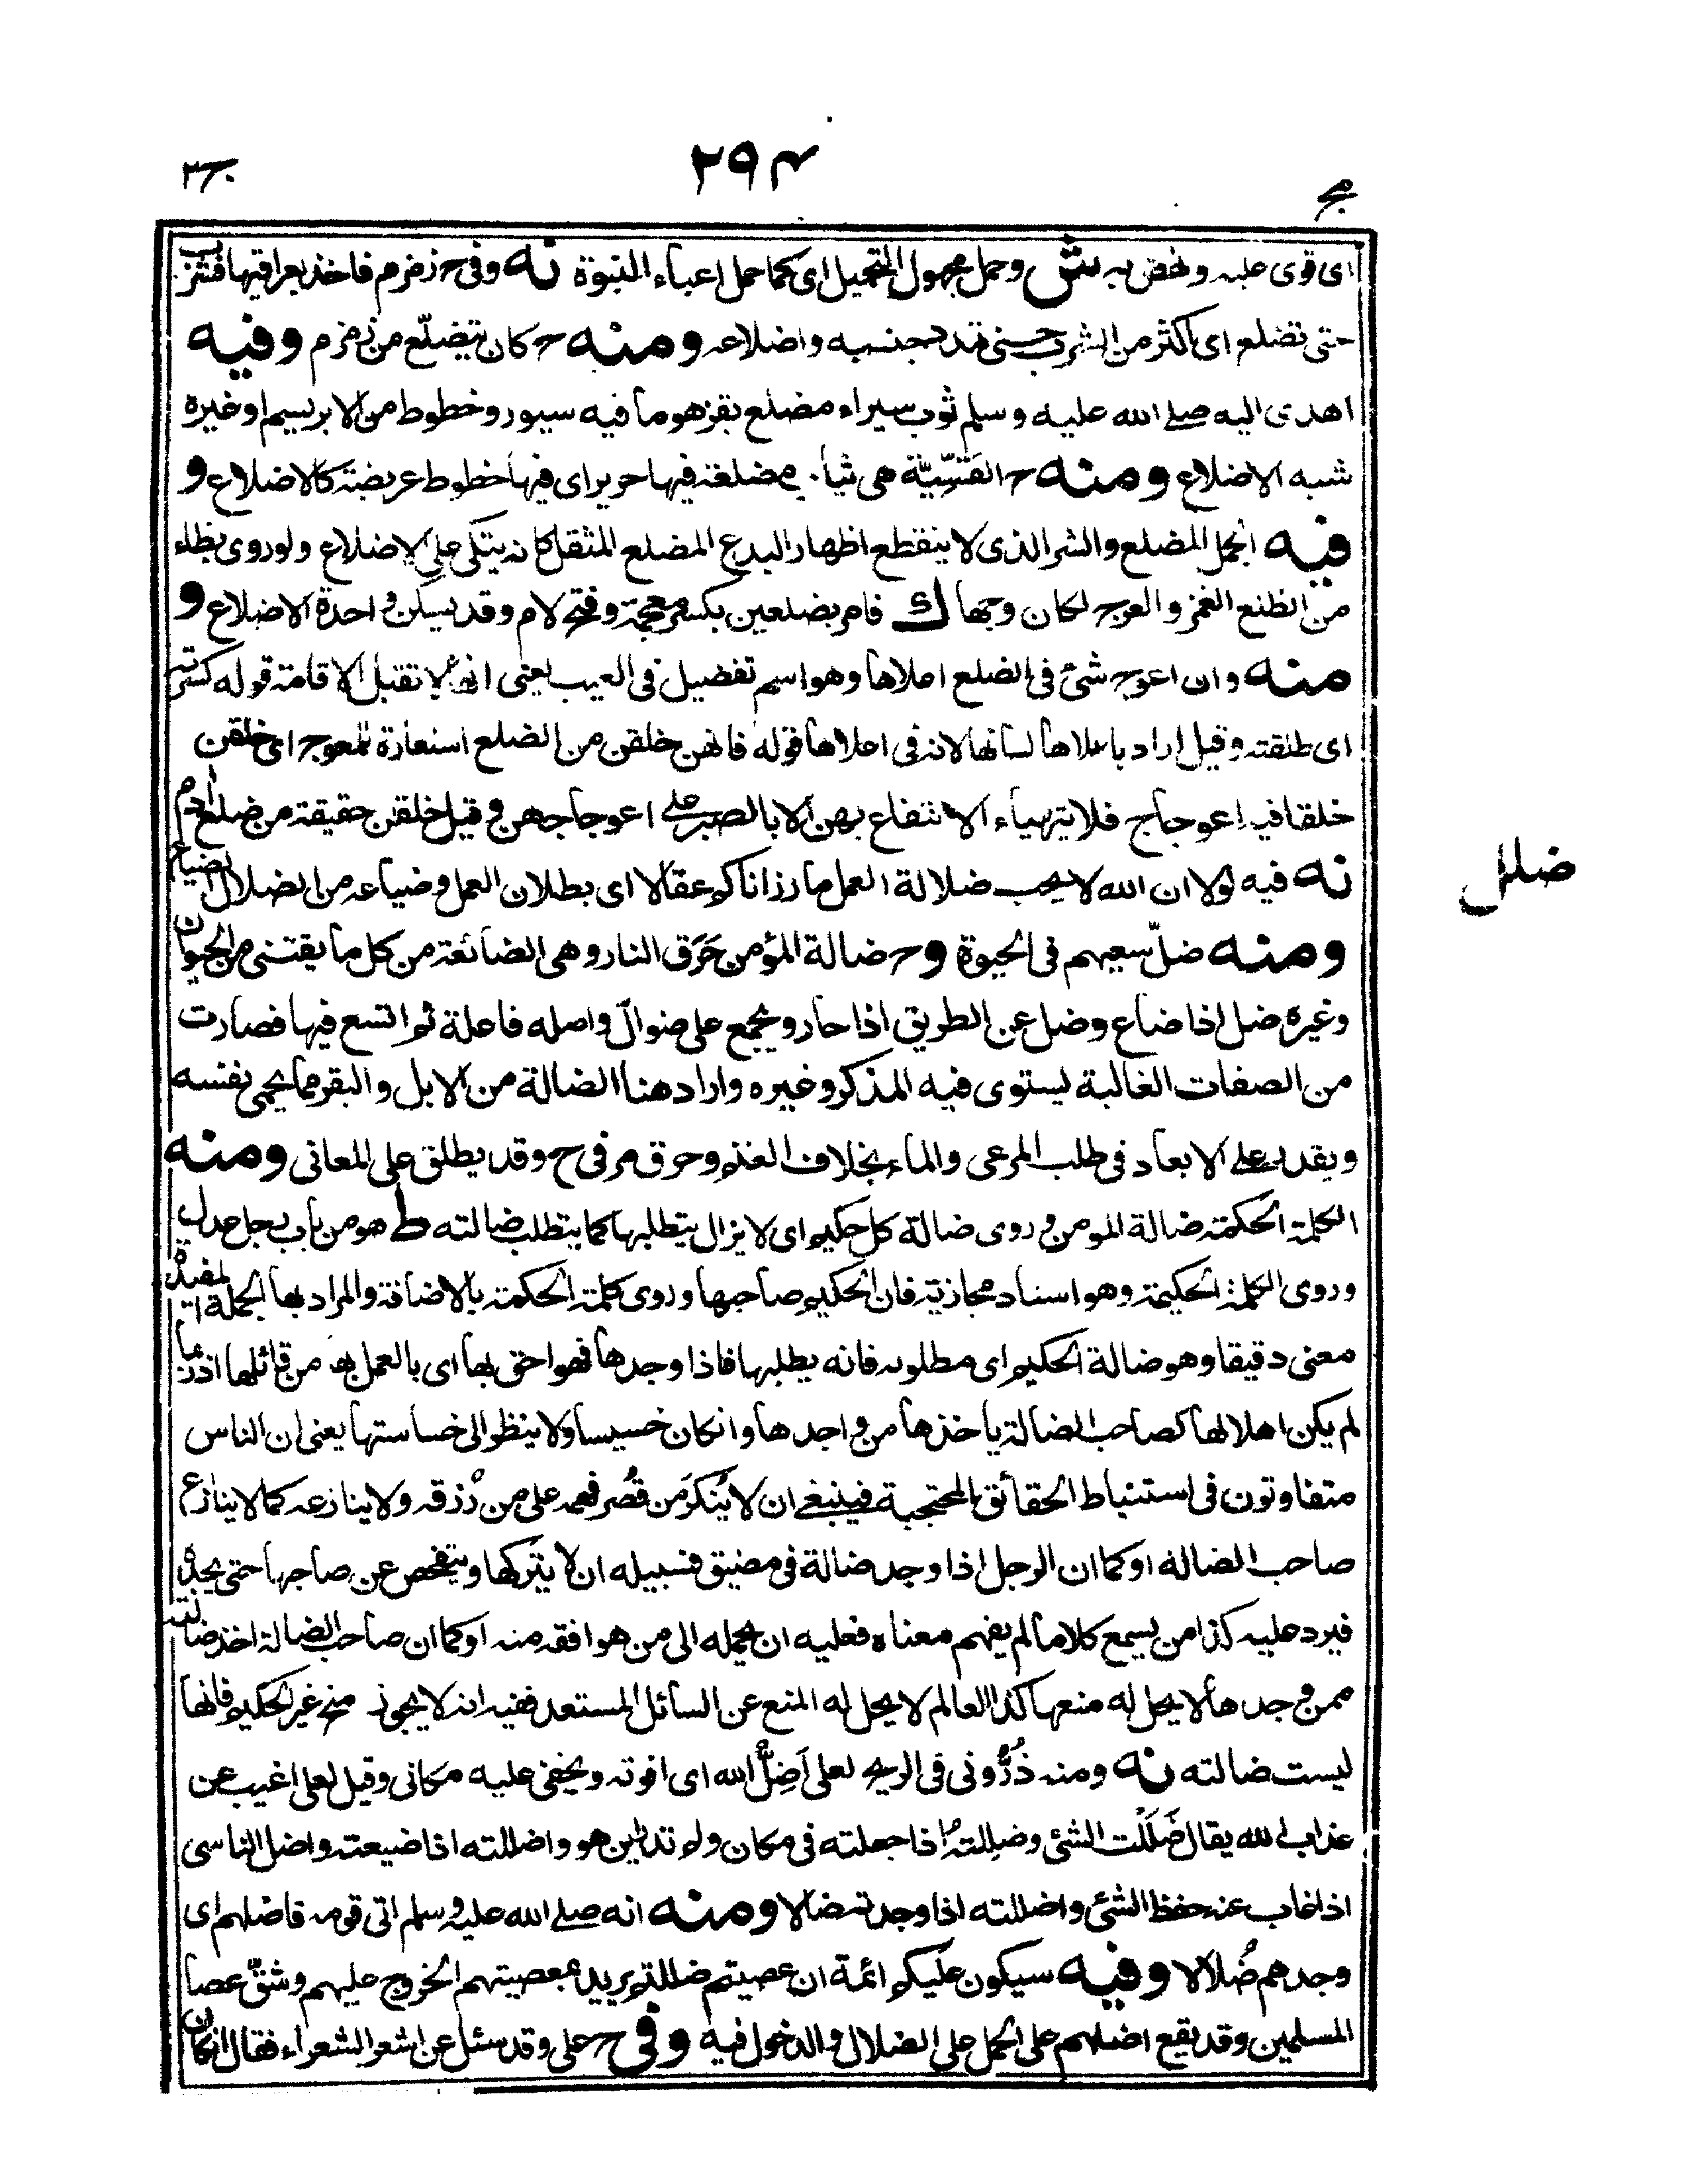 ٢٩٤
اى قوى عليه ونهض به ش وحمل مجهول التحميل اى كما حمل اعباء النبوة نه وفى ح زمزم فاخذ بعراقيها فشرب
حتى تضلع اى اكثر من الشرب حتى تمدد جنبه واضلاعه ومنه ح كان يتضلّع من زمزم وفيه
اهدى اليه صلى الله عليه وسلم ثوب سيراء مضلع بقز هو ما فيه سيور وخطوط من الابريسم او غيره
شبه الاضلاع ومنه ح القسّيّة هى ثياب مضلعة فيها حرير اى فيها خطوط عريضة كالاضلاع و
فيه الحمل المضلع والشر الذى لا ينقطع اظهار البدع المضلع المثقل كانه يتكى على الاضلاع ولو روى بظاء
من الظلع الغمز والعرج لكان وجها ك فامر بضلعين بكسر معجمة وفتح لام وقد يسكن واحدة الاضلاع و
منه وان اعوج شئ فى الضلع اعلاها وهو اسم تفضيل فى العيب يعنى انها لا تقبل الاقامة قوله كسرته
اى طلقته وقيل اراد باعلاها لسانها لانه فى اعلاها قوله فانهن خلقن من الضلع استعارة للمعوج اى خلقن
خلقا فيه اعوجاج فلا يتهياء الانتفاع بهن الا بالصبر على اعوجاجهن وقيل خلقن حقيقة من ضلع ادم
نه فيه لولا ان الله لا يحب ضلالة العمل ما رزاناكم عقالا اى بطلان العمل وضياعه من الضلال الضياع
ضلل
ومنه ضلّ سعيهم فى الحيوة وح ضالة المؤمن حَرَق النار وهى الضائعة من كل ما يقتنى من الحيوان
وغيره ضل اذا ضاع وضل عن الطريق اذا حار ويجمع على ضوالّ واصله فاعلة ثم اتسع فيها فصارت
من الصفات الغالبة يستوى فيه المذكر وغيره واراد هنا الضالة من الابل والبقر مما يحمى نفسه
ويقدر على الابعاد فى طلب المرعى والماء بخلاف الغنم وحرق مر فى ح وقد يطلق على المعانى ومنه
الكلمة الحكمة ضالة المومن وروى ضالة كل حكيم اى لا يزال يتطلبها كما يتطلب ضالته ط هو من باب رجل عدل
وروى الكلمة الحكيمة وهو اسناد مجازية فان الحكيم صاحبها وروى كلمة الحكمة بالاضافة والمراد بها الجملة المفيدة
معنى دقيقا وهو ضالة الحكيم اى مطلوبه فانه يطلبها فاذا وجدها فهو احق بها اى بالعمل بها من قائلها اذ ربما
لم يكن اهلا لها كصاحب الضالة ياخذها من واجدها وان كان خسيسا ولا ينظر الى خساستها يعنى ان الناس
متفاوتون فى استنباط الحقائق المحتجبة فينبغى ان لا يُنكر مَن قصُر فهمه على من رُزقه ولا ينازعه كما لا ينازع
صاحب الضالة او كما ان الرجل اذا وجد ضالة فى مضيق فسبيله ان لا يتركها ويتفحص عن صاحبها حتى يجده
فيرد عليه كذا من يسمع كلاما لم يفهم معناه فعليه ان يحمله الى من هو افقه منه او كما ان صاحب الضالة اخذ ضالته
ممن وجدها لا يحل له منعها كذا العالم لا يحل له المنع عن السائل المستعد ففيه انه لا يجوز منح غير الحكيم فانها
ليست ضالته نه ومنه ذُرُّونى فى الريح لعلى اَضِلّ الله اى افوته ويخفى عليه مكانى وقيل لعلى اغيب عن
عذاب الله يقال ضَلَلْت الشئ وضلِلته اذا جعلته فى مكان ولم تدر اين هو واضللته اذا ضيعته واضل الناسى
اذا غاب عنه حفظ الشئ واضللته اذا وجدته ضالا ومنه انه صلى الله عليه وسلم اتى قومه فاضلهم اى
وجدهم ضُلالا وفيه سيكون عليكم ائمة ان عصيتم ضللتم يريد بمعصيتهم الخروج عليهم وشقّ عصا
المسلمين وقد يقع اضلهم على الحمل على الضلال والدخول فيه وفى ح على وقد سئل عن اشعر الشعراء فقال ان كان